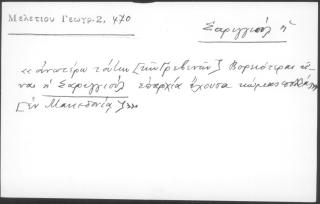 Μελετίου Γεωγρ. 2, 470
Σαριγγιόλ ἡ
«ἀνωτέρω τούτων [τῶν Γρεβενῶν] Βορειότερα εἶ-
ναι ἡ Σαριγγιόλ ἐπαρχία ἔχουσα κώμας πολλάς
[ἐν Μακεδονίᾳ]»